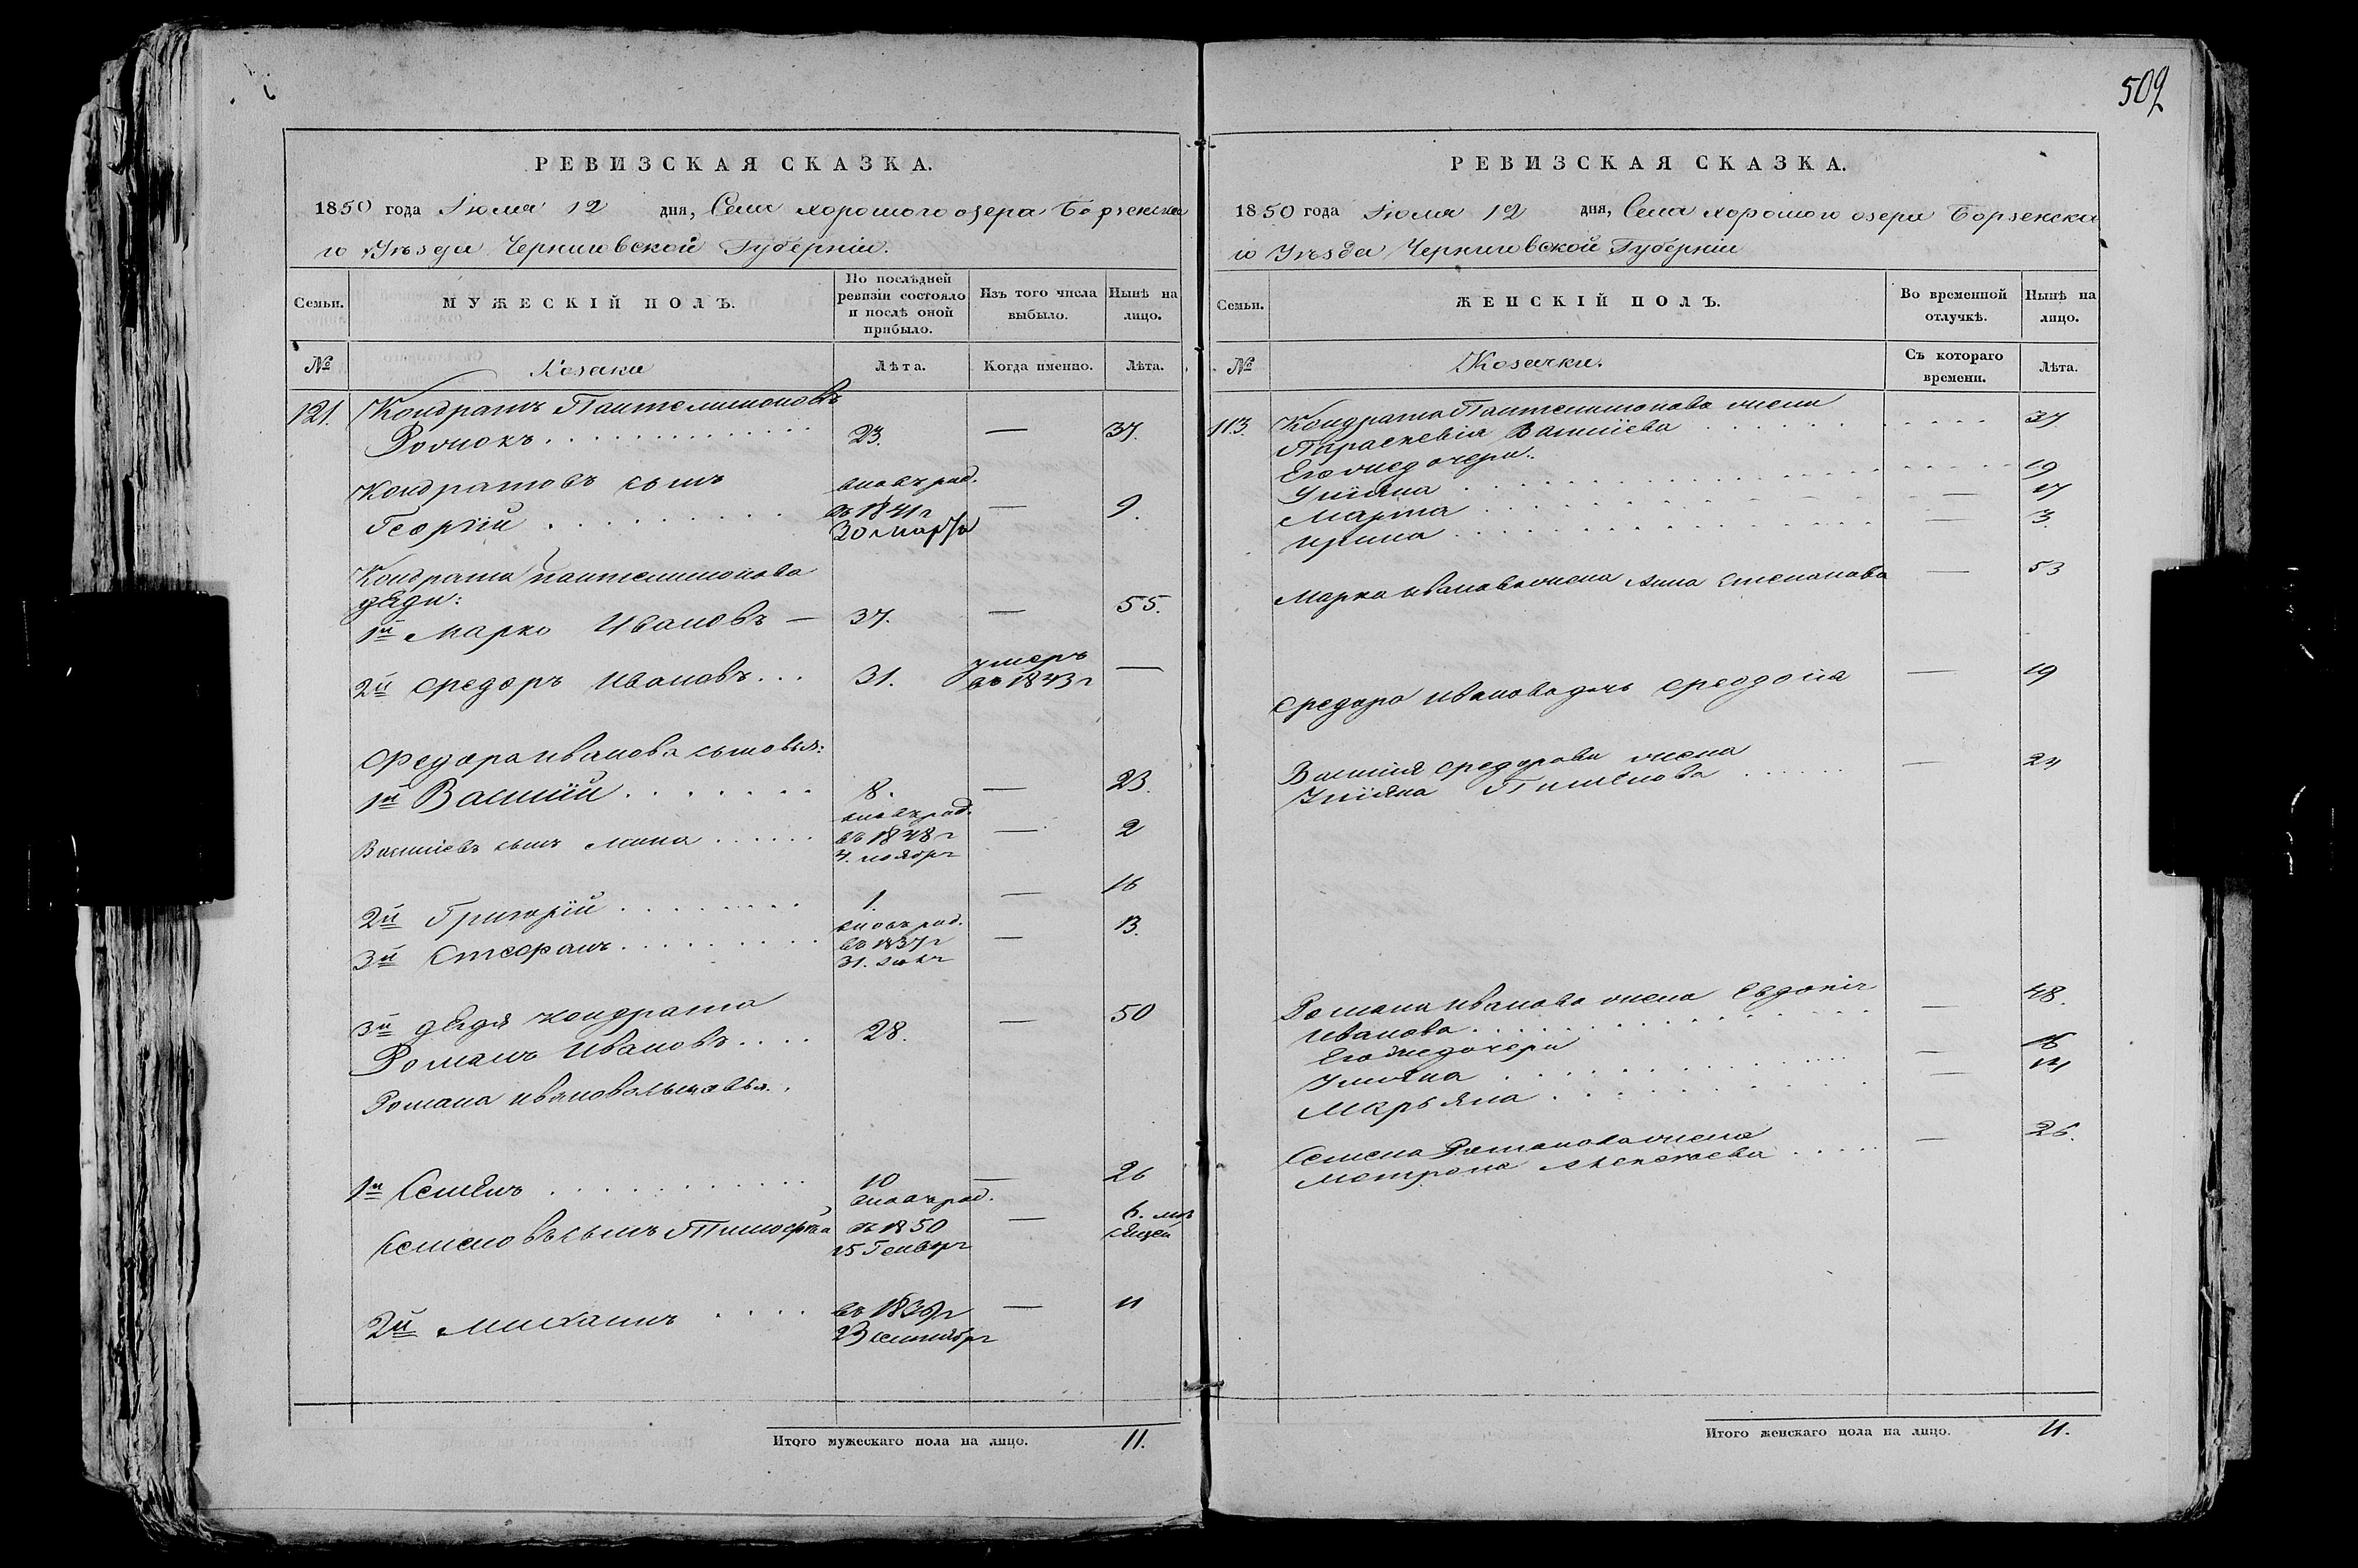 509
РЕВИЗСКАЯ СКАЗКА.
1850 года Іюля 12 дня, Села Хорошого озера Борзенска
го Уѣзда Черниговской Губерніи.
Семьи. МУЖЕСКІЙ ПОЛЪ. По послѣдней ревизіи состояло и послѣ оной прибыло. Изъ того числа выбыло. Нынѣ на лицо.
№ Козаки Лѣта. Когда именно. Лѣта.
121. Кондратъ Пантелимоновъ
Рожокъ 23. — 37.
Кондратовъ сынъ вновь род.
Георгій въ 1841 г — 9.
30 марта
Кондрата Пантелимонова
дяди:
1й Марко Ивановъ — 37. — 55.
2й Федоръ Ивановъ 31. умеръ въ 1843 г —
Федора Иванова сыновья:
1й Василій 8. — 23.
вновь род.
Василіевъ сынъ Мина въ 1848 г — 2
4. ноября
2й Григорій 1. — 16
вновь род.
3й Стефанъ въ 1837 г — 13.
31.
3й дядя Кондрата
Романъ Ивановъ 28. — 50
Романа Иванова сыновья.
1й Семенъ 10 — 26
вновь род.
Семеновъ сынъ Тимофей въ 1850 — 6. мѣ
15 Генваря сяцей
2й Михаилъ въ 1839 г — 11
23 сентября
Итого мужескаго пола на лицо. 11.
РЕВИЗСКАЯ СКАЗКА.
1850 года Іюля 12 дня, Села Хорошого озера Борзенска
го Уѣзда Черниговской Губерніи
Семьи. ЖЕНСКІЙ ПОЛЪ. Во временной отлучкѣ. Нынѣ на лицо.
№ Козачки. Съ котораго времени. Лѣта.
113. Кондрата Пантелимонова жена
Параскевія Василіева 37
Его же дочери:
Уліяна 19
Марта — 17
Ирина — 3.
Марка Иванова жена Анна Степанова — 53
Федора Иванова дочь Феодосія — 19
Василія Федорова жена
Уліяна Пименова — 24
Романа Иванова жена Евдокія
Иванова — 48.
Его же дочери
Уліяна — 16
Марьяна — 14
Семена Романова жена
Матрона Алексѣева — 26.
Итого женскаго пола на лицо. 11.